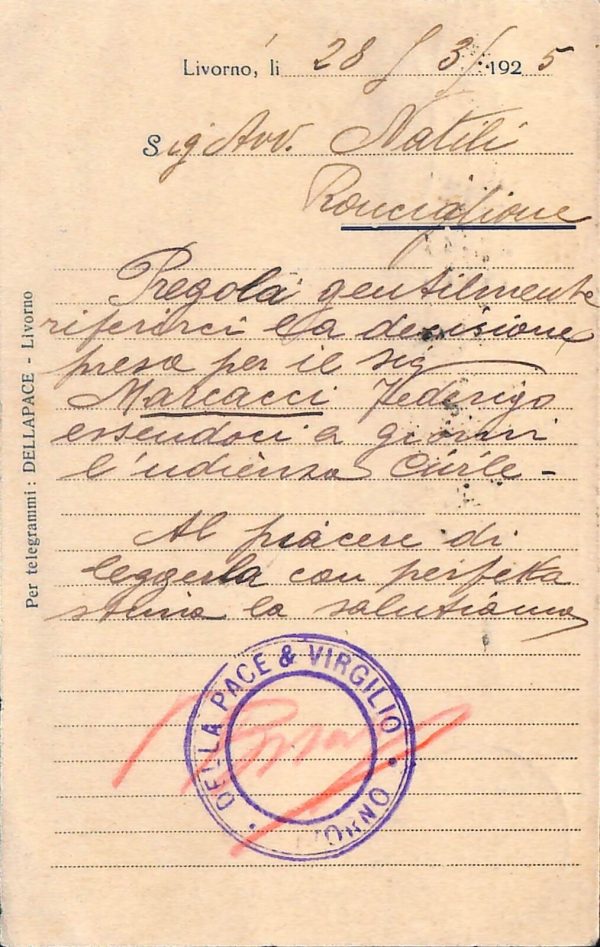 Livorno, li 28/3/1925
Sig Avv. Natili
Ronciglione
Pregola gentilmente
riferirci la decisione
presa per il sig
Marcacci Federigo
essendoci a giorni
l'udienza Civile -
Al piacere di
leggerla con perfetta
stima la salutiamo
DELLA PACE & VIRGILIO
LIVORNO
Per telegrammi: DELLAPACE - Livorno